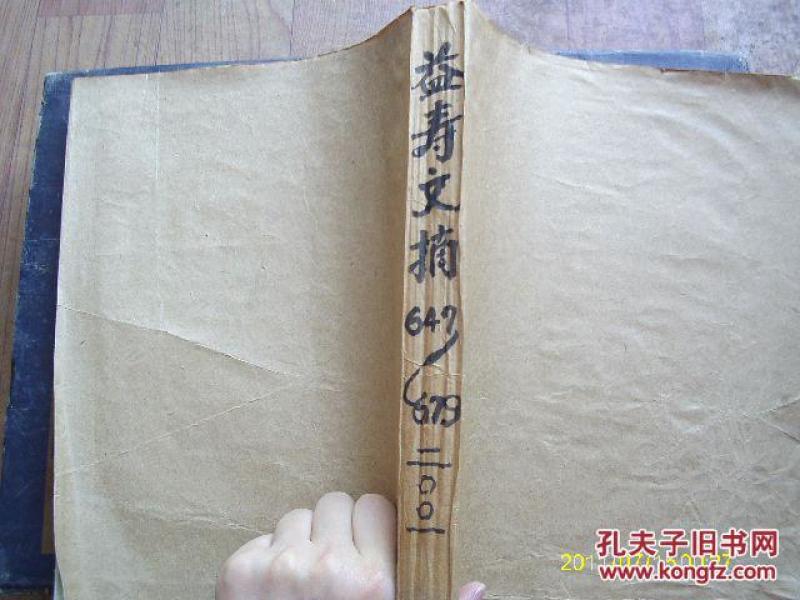 益寿文摘
647
673
二〇〇一
孔夫子旧书网
www.kongfz.com